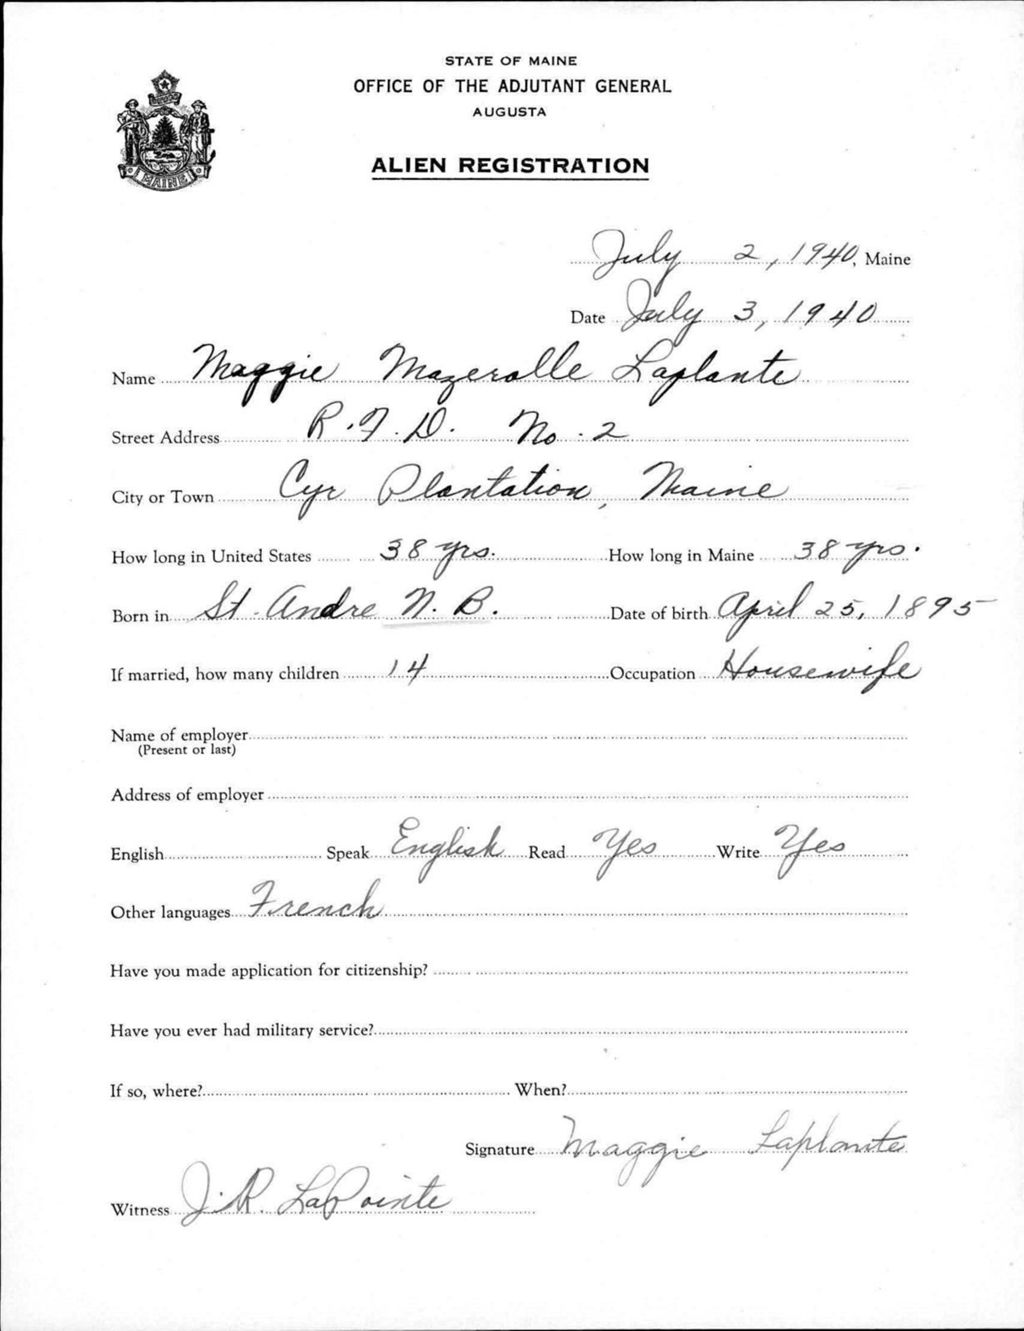 STATE OF MAINE
OFFICE OF THE ADJUTANT GENERAL
AUGUSTA
ALIEN REGISTRATION
MAINE
July 2, 1940, Maine
Date July 3, 1940
Name Maggie Mazerolle Laplante
Street Address R.F.D. No. 2
City or Town Cyr Plantation, Maine
How long in United States 38 yrs. How long in Maine 38 yrs.
Born in St. Andre N. B. Date of birth April 25, 1895
If married, how many children 14 Occupation Housewife
Name of employer
(Present or last)
Address of employer
English Speak English Read Yes Write Yes
Other languages French
Have you made application for citizenship?
Have you ever had military service?
If so, where? When?
Signature Maggie Laplante
Witness J. R. LaPointe